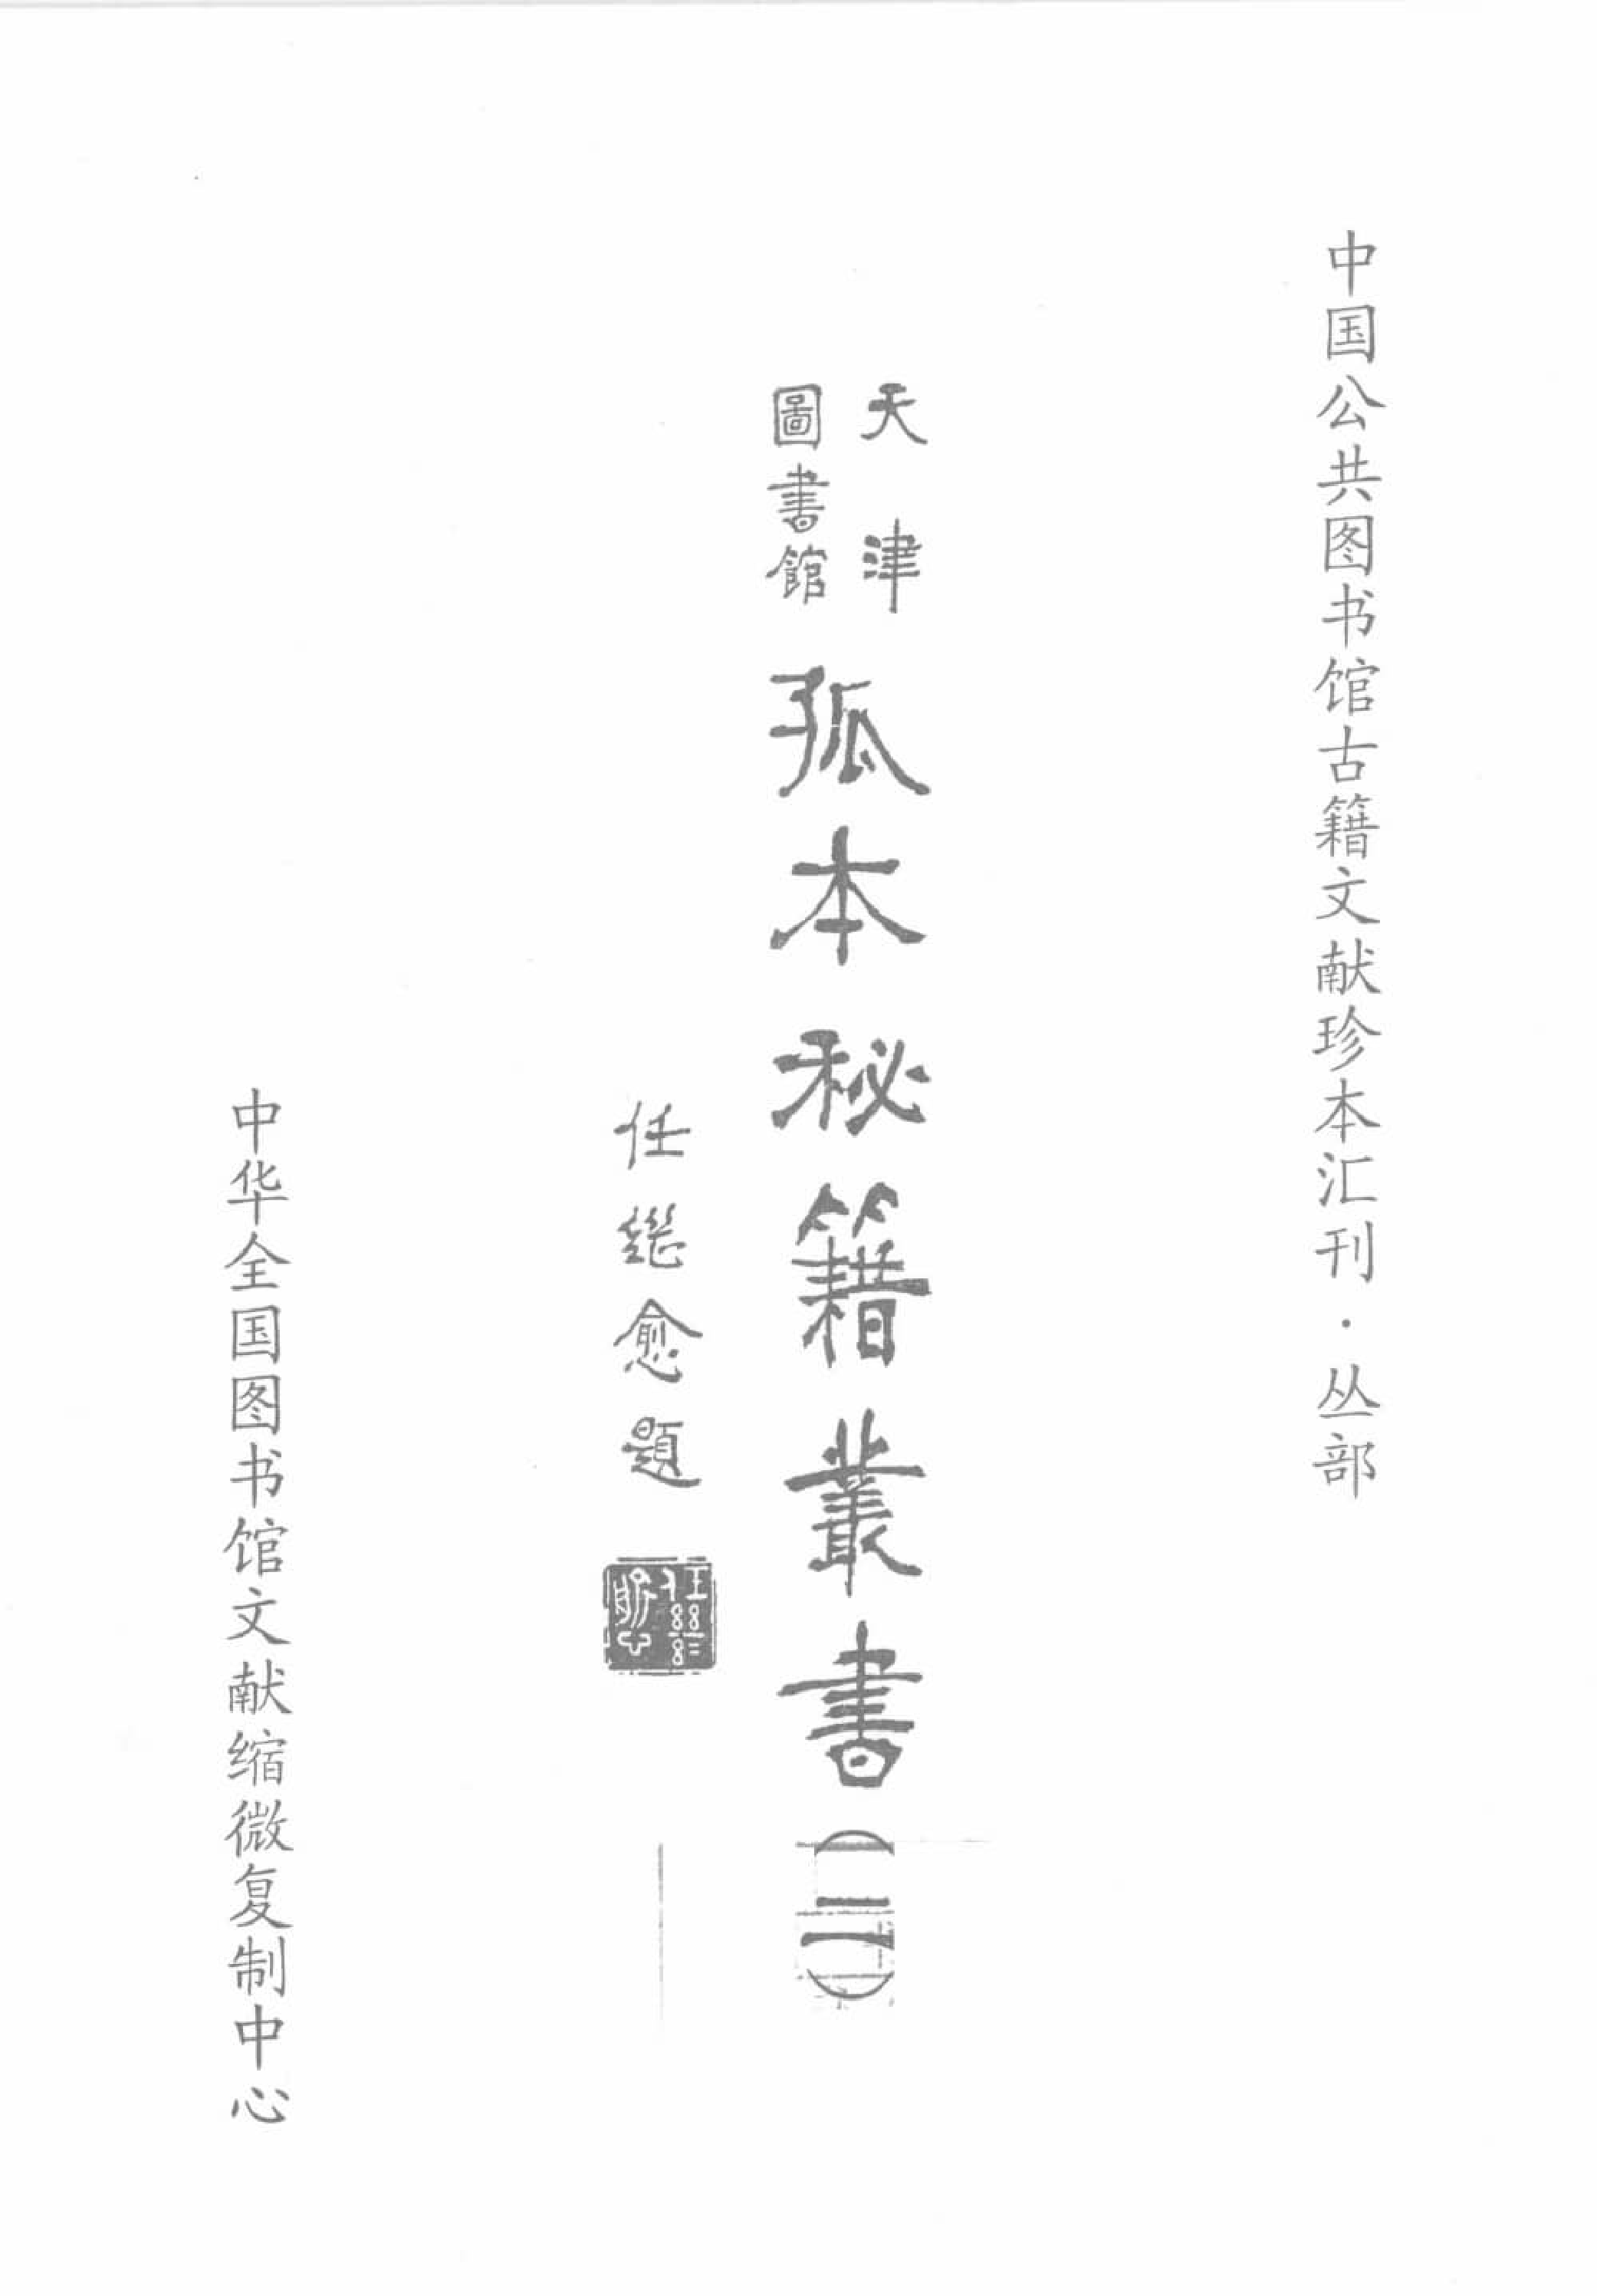 中国公共图书馆古籍文献珍本汇刊·丛部
天津
圖書館
孤本秘籍叢書(二)
任继愈題
中华全国图书馆文献缩微复制中心